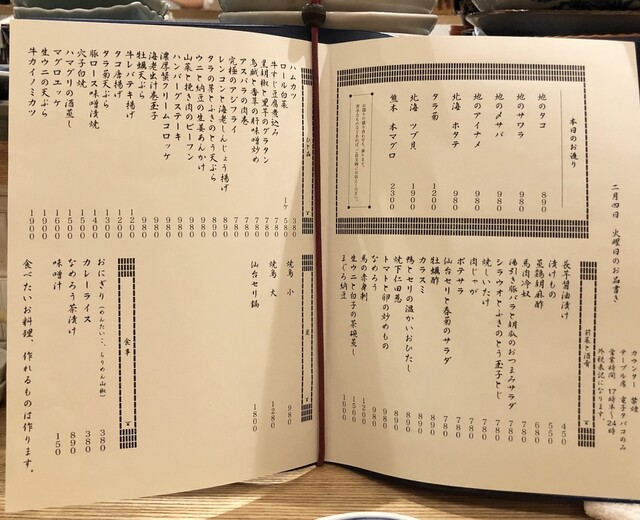 二月四日 火曜日のお品書き
カウンター 禁煙
テーブル席 電子タバコのみ
営業時間 17時半〜24時
外税表記になります。
本日のお造り
地のタコ 890
地のサワラ 980
地のメサバ 980
地のアイナメ 980
北海 ホタテ 980
タラ菊 1200
北海 ツブ貝 1900
熊本 本マグロ 2300
前菜と酒肴
長芋醤油漬け 450
漬けもの 550
蒸鶏胡麻酢 680
馬肉冷奴 780
湯引き豚バラと胡瓜のおつまみサラダ 780
シラウオとふきのとう玉子とじ 780
焼しいたけ 780
肉じゃが 780
ポテサラ 780
仙台セリと春菊のサラダ 780
牡蠣酢 890
カラスミ 890
鴨とセリの温かいおひたし 890
焼下仁田葱 890
トマトと卵の炒めもの 890
なめろう 980
馬の赤身刺 1200
生ウニと白子の茶碗蒸し 1500
まぐろ納豆 1600
ハムカツ 380
ロール白菜 1ヶ 580
牛すじ豆腐煮込み 780
黒胡椒と里芋のグラタン 780
鳥軟と香草の肝味噌炒め 780
アスパラの肉巻 780
究極のアジフライ 780
レンコンと海老しんじょう揚げ 980
タラの芽とふきのとう天ぷら 980
ウニと納豆の生姜あんかけ 980
山菜と挽き肉のビーフン 980
ハンバーグステーキ 980
濃厚蟹クリームコロッケ 980
海老出汁巻玉子 980
牡蠣天ぷら 980
牛レバテキ揚げ 1200
タコ唐揚げ 1200
タラ菊天ぷら 1300
豚ロース味噌漬焼 1400
穴子白焼 1500
ハマグリの酒蒸し 1600
マグロユッケ 1600
生ウニの天ぷら 1900
牛カイノミカツ 1900
焼鳥 小 980
焼鳥 大 1280
仙台セリ鍋 1800
食事
おにぎり（めんたいこ、ちりめん山椒） 380
カレーライス 380
なめろう茶漬け 890
味噌汁 150
食べたいお料理、作れるものは作ります。